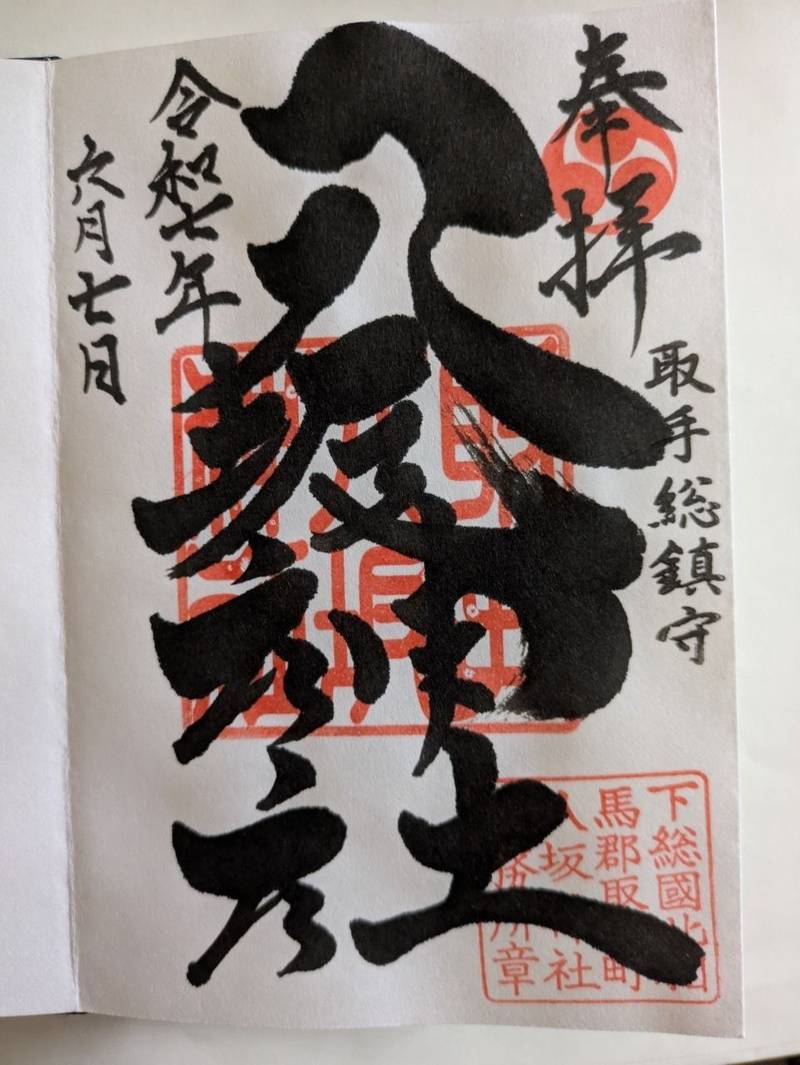 奉拝
取手総鎮守
八坂神社
令和七年
六月七日
下総國北相
馬郡取手町
八坂神社
務所章